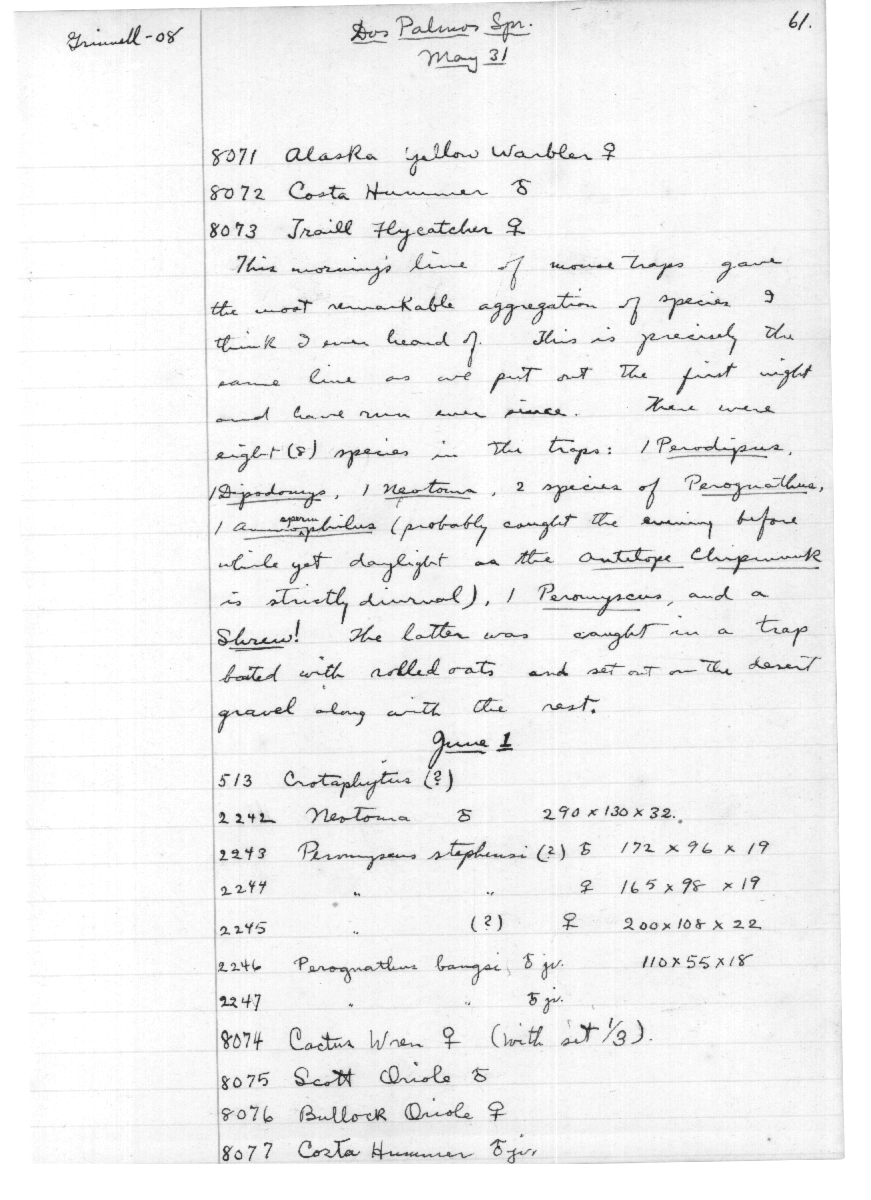 Grinnell-08
Dos Palmos Spr.
61.
May 31
8071 Alaska Yellow Warbler ♀
8072 Costa Hummer ♂
8073 Traill Flycatcher ♀
This morning's line of mouse traps gave
the most remarkable aggregation of species I
think I ever heard of. This is precisely the
same line as we put out the first night
and have run ever since. There were
eight (8) species in the traps: 1 Perodipus,
1 Dipodomys, 1 Neotoma, 2 species of Perognathus,
1 Ammospermophilus (probably caught the evening before
while yet daylight as the Antelope Chipmunk
is strictly diurnal), 1 Peromyscus, and a
Shrew! The latter was caught in a trap
baited with rolled oats and set out on the desert
gravel along with the rest.
June 1
513 Crotaphytus (?)
2242 Neotoma ♂ 290 x 130 x 32.
2243 Peromyscus stephensi (?) ♂ 172 x 96 x 19
2244 " " ♀ 165 x 98 x 19
2245 " (?) ♀ 200 x 108 x 22
2246 Perognathus bangsi ♂ jv. 110 x 55 x 18
2247 " " ♂ jv.
8074 Cactus Wren ♀ (with set 1/3).
8075 Scott Oriole ♂
8076 Bullock Oriole ♀
8077 Costa Hummer ♂ jv.